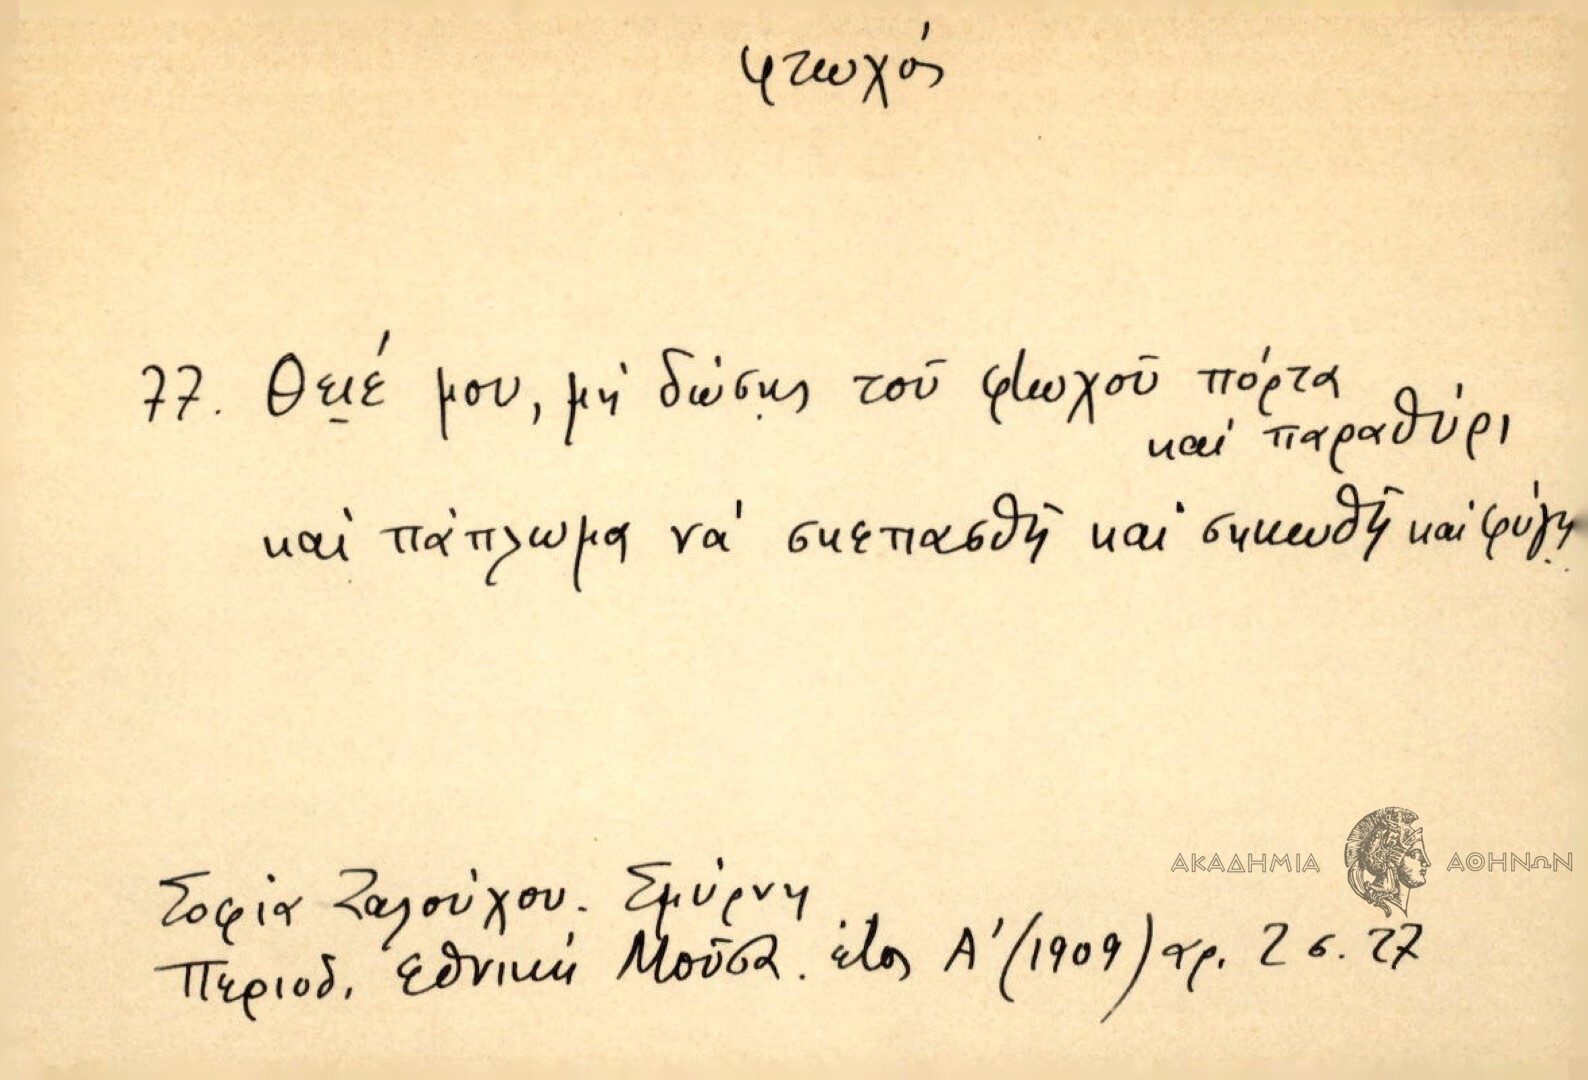 φτωχός
77. Θεέ μου, μὴ δώσῃς τοῦ φτωχοῦ πόρτα
καὶ παραθύρι
καὶ πάπλωμα νὰ σκεπασθῇ καὶ σηκωθῇ καὶ φύγῃ
Σοφία Σαλούχου. Σμύρνη
Περιοδ. Εθνική Μοῦσα. ἔτος Α' (1909) αρ. 2 σ. 27
ΑΚΑΔΗΜΙΑ ΑΘΗΝΩΝ